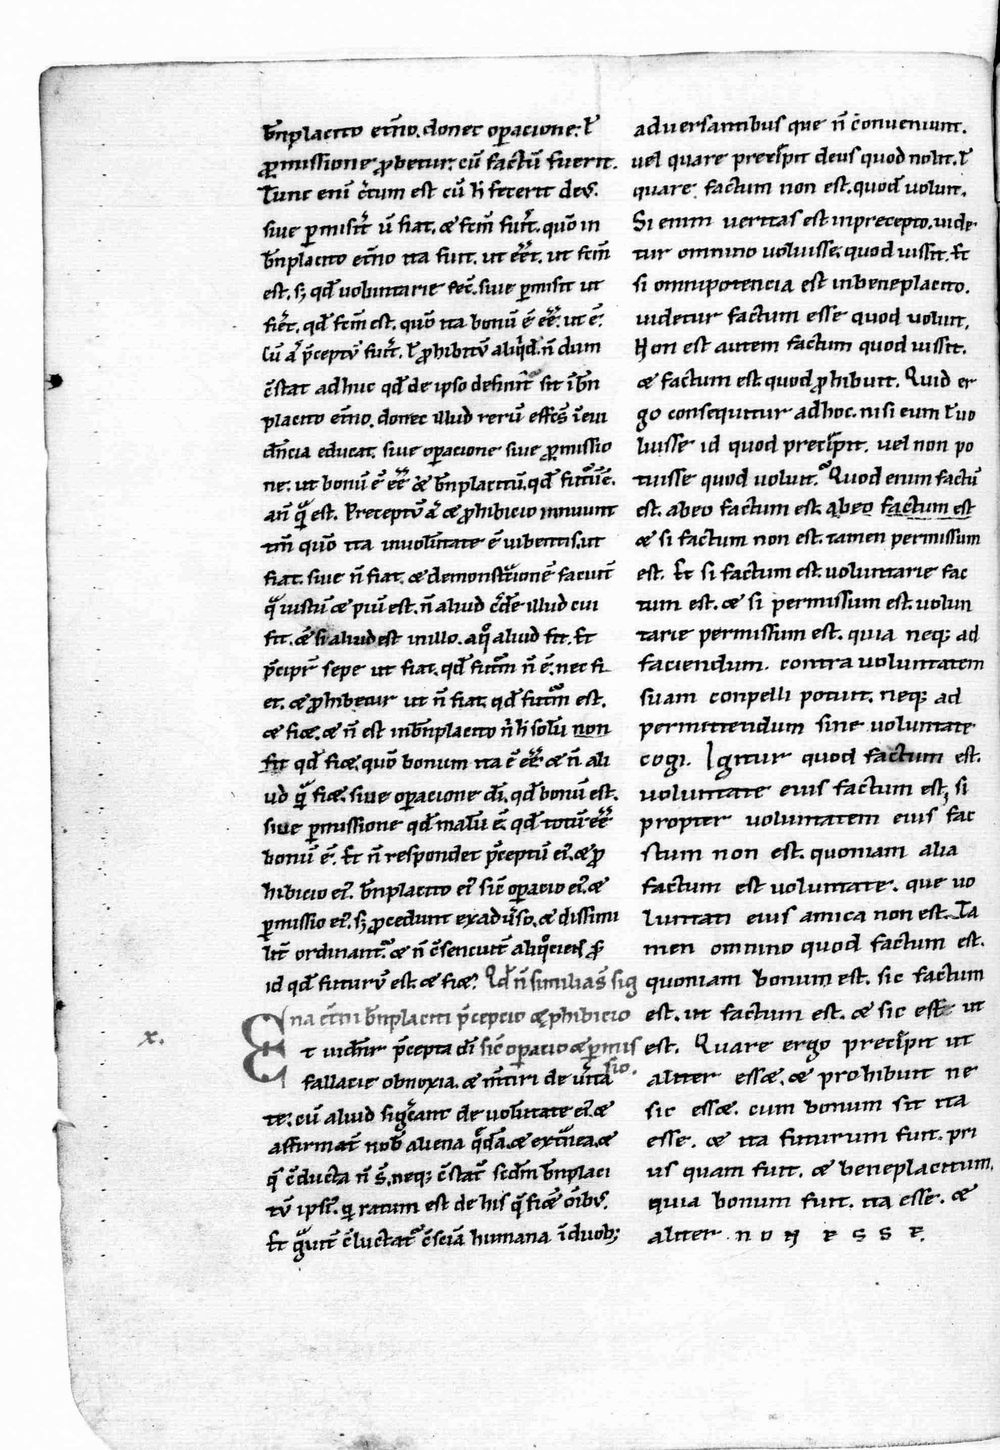 bn̄placito et̄no. donec operacione: ł
ꝓmissione ꝓbetur: cū factū fuerit.
Tunc eni c̄tum est cū h̄ fecerit deꝰ.
siue ꝑmisit ut̄ fiat. æ fcm̄ fuit. quō in
bn̄placito et̄no ita fuit. ut eēt. ut fcm̄
est. sꝫ qd̄ uoluntarie fec̄. siue ꝑmisit ut
fieret. qd̄ fcm̄ est. quō ita bonū ē eē. ut ē.
Cū aū p̄ceptū fuit. ł ꝓhibitū aliqid. n̄ dum
c̄stat adhuc qd̄ de ipso definit̄ sit ī bn̄
placito et̄no. donec illud rerū effcs̄ ī eui
dn̄cia educat. siue operacione siue ꝓmissio
ne. ut bonū ē eē æ bn̄placitū. qd̄ futurū ē.
an̄ q̄ est. Preceptū aū æ ꝓhibicio mouunt
tm̄ quō ita in uolūtate ē iubentis. ut
fiat. siue n̄ fiat. æ demonstrationē faciunt
q̄ iustū æ piū est. n̄ aliud c̄de illud cui
fit. æ si aliud est in illo. a quo aliud fit. Et
p̄cipit sepe ut fiat. qd̄ futurū n̄ ē. nec fi
et. æ ꝓhibetur ut n̄ fiat. qd̄ futurū est.
æ fiet. æ n̄ est in bn̄placito n̄ h̄ solū non
fit qd̄ fiet. quō bonum ita ē eē æ n̄ ali
ud q̄ fiet. siue operacione di. qd̄ bonū est.
siue ꝑmissione qd̄ malū ē. qd̄ totū eē
bonū ē. Et n̄ respondet p̄ceptū eiꝰ. æ ꝓ
hibicio eiꝰ. bn̄placito eiꝰ sic̄ operacio eiꝰ. æ
ꝑmissio eiꝰ. sꝫ ꝓcedunt ex aduso. æ dissimi
lit̄ ordinant. æ n̄ c̄senciunt aliquociens
id qd̄ futurū est æ fiet. Qd̄ n̄ similia s̄ sig
na et̄ni bn̄placiti p̄cepcio æ ꝓhibicio
Et uident̄ p̄cepta di sic̄ operacio æ ꝑmissio.
fallacie obnoxia. æ mentiri de ueritā
te: cū aliud sigficant de uolūtate eiꝰ. æ
affirmat̄ nob̄ aliena q̄dā. æ extranea. æ
q̄ c̄ducta n̄ s̄. neqꝫ c̄stat̄ secdm̄ bn̄placi
tū ipsiꝰ. q̄ ratum est de his q̄ fiet omībꝰ.
Et ḡuit c̄luctat̄ c̄sciā humana ī duobꝫ
x.
aduersantibus que n̄ conueniunt.
uel quare precipit deus quod nolit. ł
quare factum non est. quod uoluit.
Si enim ueritas est in precepto. uide
tur omnino uoluisse. quod iussit. Et
si omnipotencia est in beneplacito.
uidetur factum esse quod uoluit.
Non est autem factum quod iussit.
æ factum est quod ꝓhibuit. Quid er
go consequitur ad hoc. nisi eum ł uo
luisse id quod precipit. uel non po
tuisse quod uoluit. Quod enim factū
est. ab eo factum est. ab eo factum est
æ si factum non est. tamen permissum
est. Et si factum est. uoluntarie fac
tum est. æ si permissum est. uolun
tarie permissum est. quia neqꝫ ad
faciendum. contra uoluntatem
suam conpelli potuit. neqꝫ ad
permittendum sine uoluntate
cogi. Igitur quod factum est.
uoluntate eius factum est, si
propter uoluntatem eius fac
tum non est. quoniam alia
factum est uoluntate. que uo
luntati eius amica non est. Ta
men omnino quod factum est.
quoniam bonum est. sic factum
est. ut factum est. æ sic esse ut
est. Quare ergo precipit ut
aliter essæ. æ prohibuit ne
sic essæ. cum bonum sit ita
esse. æ ita futurum fuit. pri
us quam fuit. æ beneplacitum.
quia bonum fuit. ita esse. æ
aliter non esse.